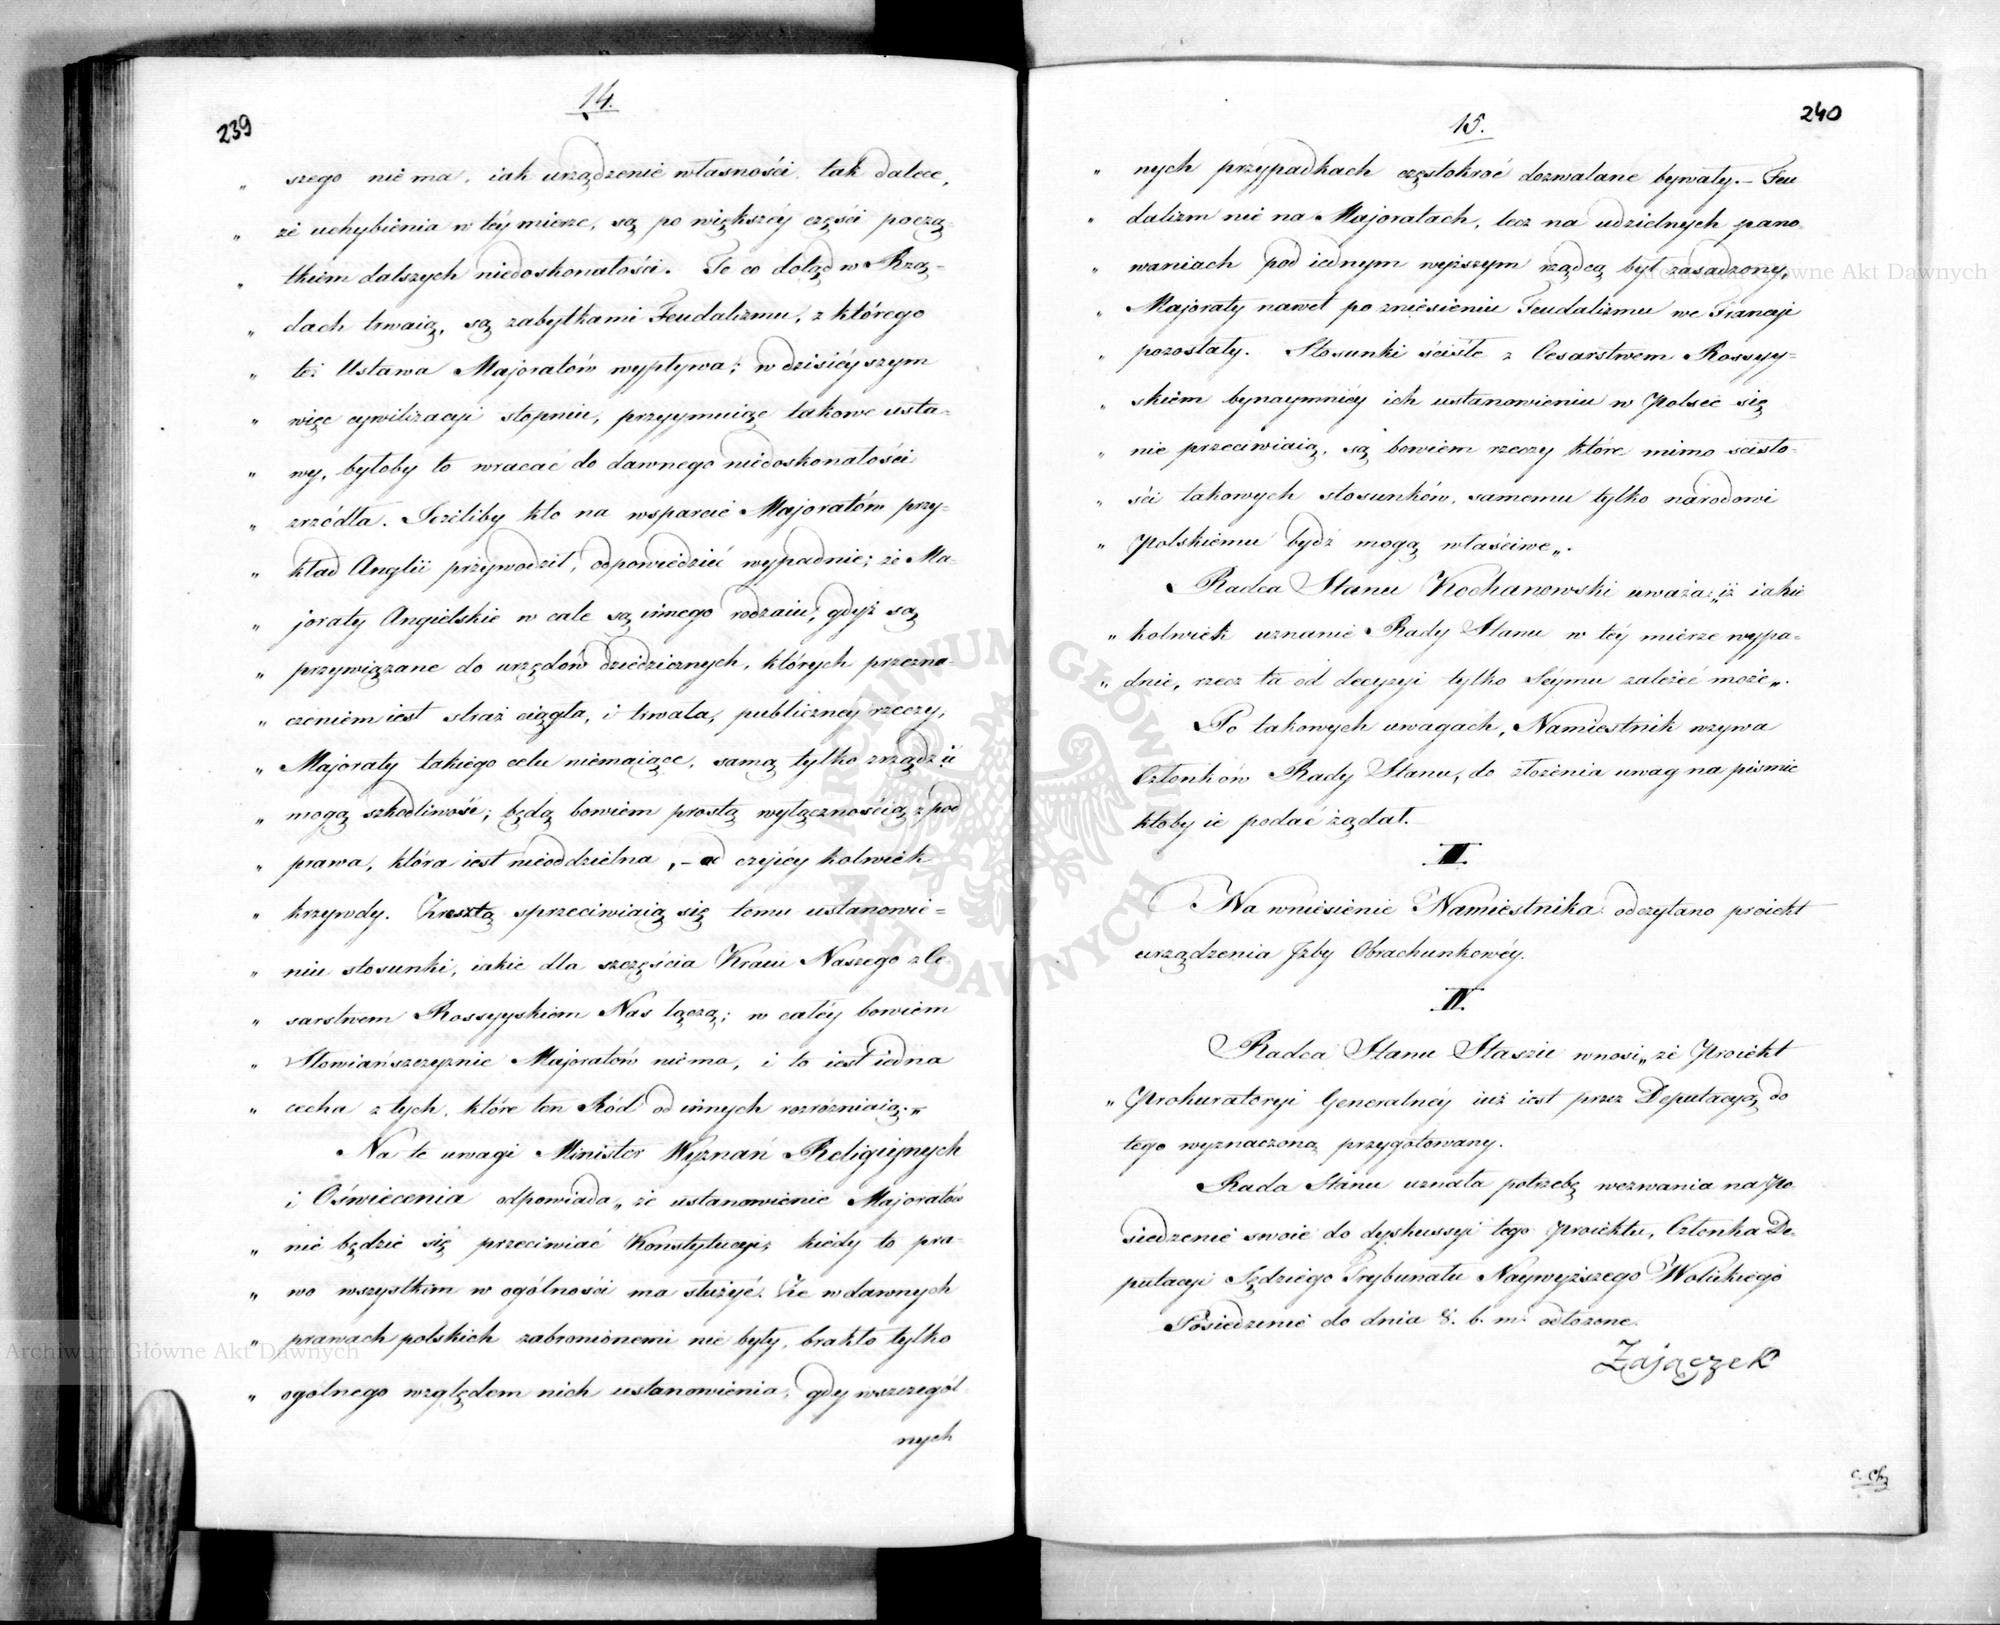 239
14.
„ szego nie ma, iak urządzenie własności, tak dalece,
„ że uchybienia w téy mierze, są po większéy części począ-
„ tkiem dalszych niedoskonałości. Te co dotąd w Rzą-
„ dach trwaią, są zabytkami Feudalizmu, z którego
„ téż Ustawa Majoratów wypływa; w dzisiéyszym
„ więc cywilizacyi stopniu, przyymuiąc takowe usta-
„ wy, byłoby to wracać do dawnego niedoskonałości
„ zrzódła. Jeżeliby kto na wsparcie Majoratów przy-
„ kład Anglii przywodził, odpowiedzieć wypadnie; że Ma-
„ joraty Angielskie w cale są innego rodzaiu, gdyż są
„ przywiązane do urzędów dziedzicznych, których przezna-
„ czeniem iest straż ciągła, i trwała, publiczney rzeczy,
„ Majoraty takiego celu niemaiące, samą tylko zrządzić
„ mogą szkodliwość; będą bowiem prostą wyłącznością z pod
„ prawa, która iest nieoddzielna, – od czyiéy kolwiek
„ krzywdy. Zresztą sprzeciwiaią się temu ustanowie-
„ niu stosunki, iakie dla szczęścia Kraiu Naszego z Ce-
„ sarstwem Rossyyskiem Nas łączą; w całéy bowiem
„ Słowiańszczyznie Majoratów niema, i to iest iedna
„ cecha z tych, które ten Ród od innych rozrózniaią.„
Na te uwagi Minister Wyznań Religijnych
i Oświecenia odpowiada „że ustanowienie Majoratów
„ nie będzie się przeciwiać Konstytucyi; kiedy to pra-
„ wo wszystkim w ogólności ma służyć. Że w dawnych
„ prawach polskich zabronionemi nie były, brakło tylko
„ ogólnego względem nich ustanowienia, gdy w szczegól
nych
240
15.
„ nych przypadkach częstokroć dozwalane bywały. – Feu
„ dalizm nie na Majoratach, lecz na udzielnych pano
„ waniach pod iednym wyższym rządcą był zasadzony,
„ Majoraty nawet po zniesieniu Feudalizmu we Francyi
„ pozostały. Stosunki ścisłe z Cesarstwem Rossyy-
„ skiém bynaymniéy ich ustanowieniu w Polsce się
„ nie przeciwiaią, są bowiem rzeczy które mimo scisło-
„ ści takowych stosunków, samemu tylko narodowi
„ Polskiemu bydź mogą właściwe„.
Radca Stanu Kochanowski uważa: „iż iakie
„ kolwiek uznanie Rady Stanu w téy mierze wypa-
„ dnie, rzecz ta od decyzyi tylko Séymu zależeć może„.
Po takowych uwagach, Namiestnik wzywa
Członków Rady Stanu, do złożenia uwag na pismie
ktoby ie podać żądał.
III.
Na wniesienie Namiestnika odczytano proiekt
urządzenia Jzby Obrachunkowéy.
IV.
Radca Stanu Staszic wnosi „że Proiekt
„ Prokuratoryi Generalnéy iuż iest przez Deputacyą do
tego wyznaczoną przygotowany.
Rada Stanu uznała potrzebę wezwania na Po-
siedzenie swoie do dyskussyi tego Proiektu, Członka De-
putacyi Sędziego Trybunału Naywyższego Wolickiego
Posiedzenie do dnia 8. b. m. odłożone.
Zajączek
Archiwum Główne Akt Dawnych
Archiwum Główne Akt Dawnych
ARCHIWUM GŁÓWNE AKT DAWNYCH